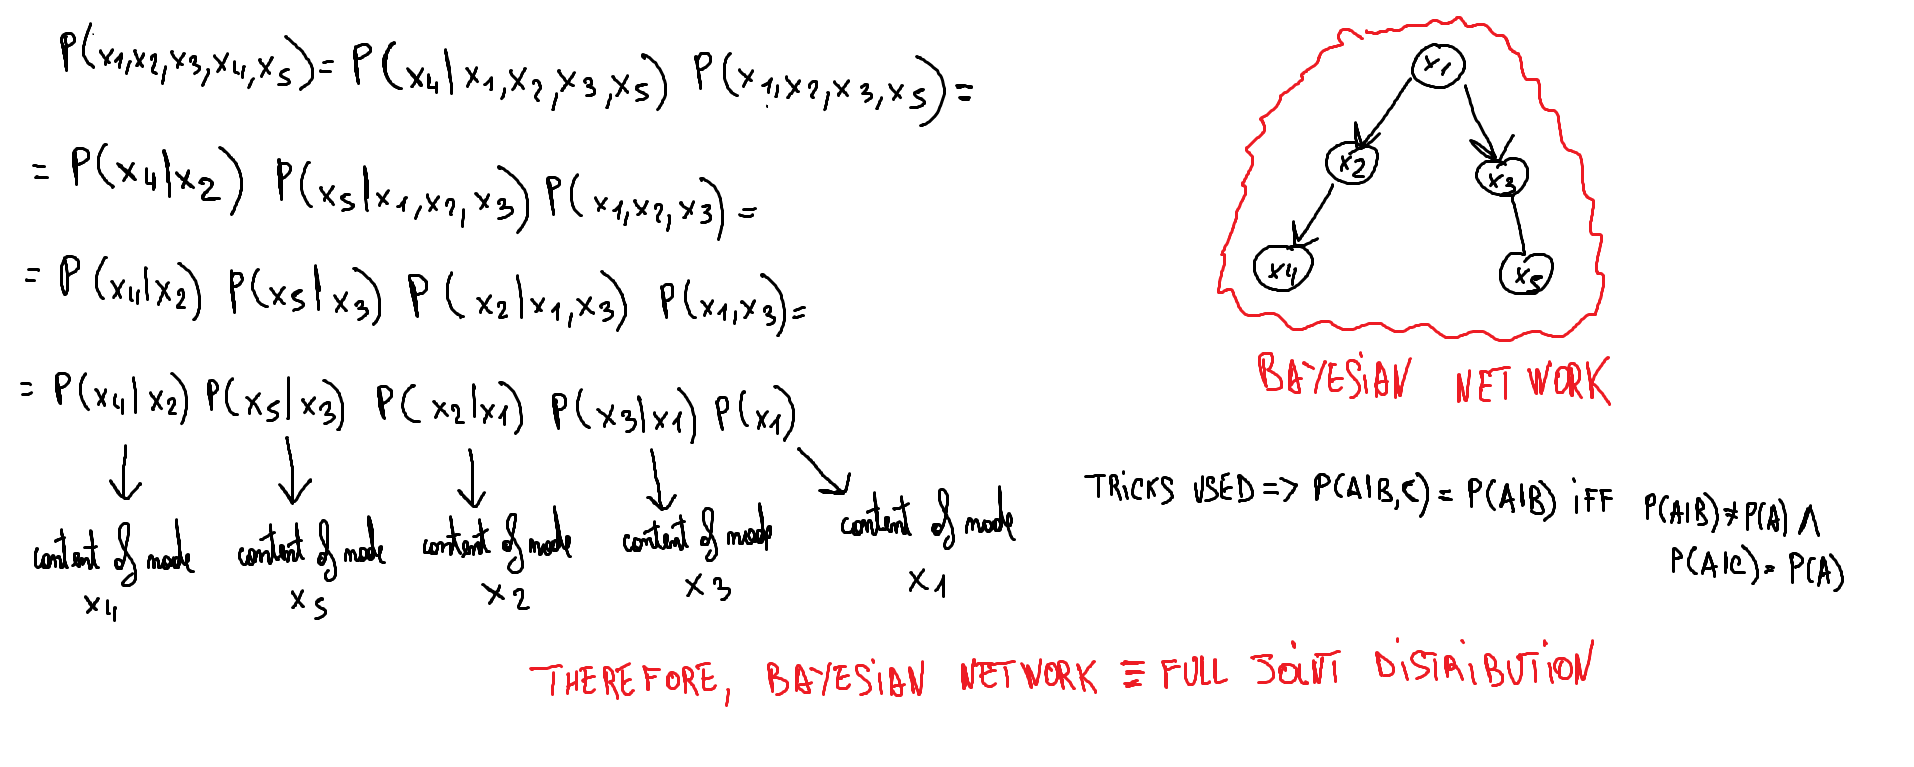 P(x1,x2,x3,x4,x5)= P(x4|x1,x2,x3,x5) P(x1,x2,x3,x5)=
= P(x4|x2) P(x5|x1,x2,x3) P(x1,x2,x3)=
= P(x4|x2) P(x5|x3) P(x2|x1,x3) P(x1,x3)=
= P(x4|x2) P(x5|x3) P(x2|x1) P(x3|x1) P(x1)
content of node
x4
content of node
x5
content of node
x2
content of node
x3
content of node
x1
x1
x2
x3
x4
x5
BAYESiAN NETWORK
TRiCKS USED => P(A|B,C) = P(A|B) iFF P(A|B) ≠ P(A) ∧
P(A|C) = P(A)
THEREFORE, BAYESiAN NETWORK ≡ FULL JOiNT DiSTRiBUTiON